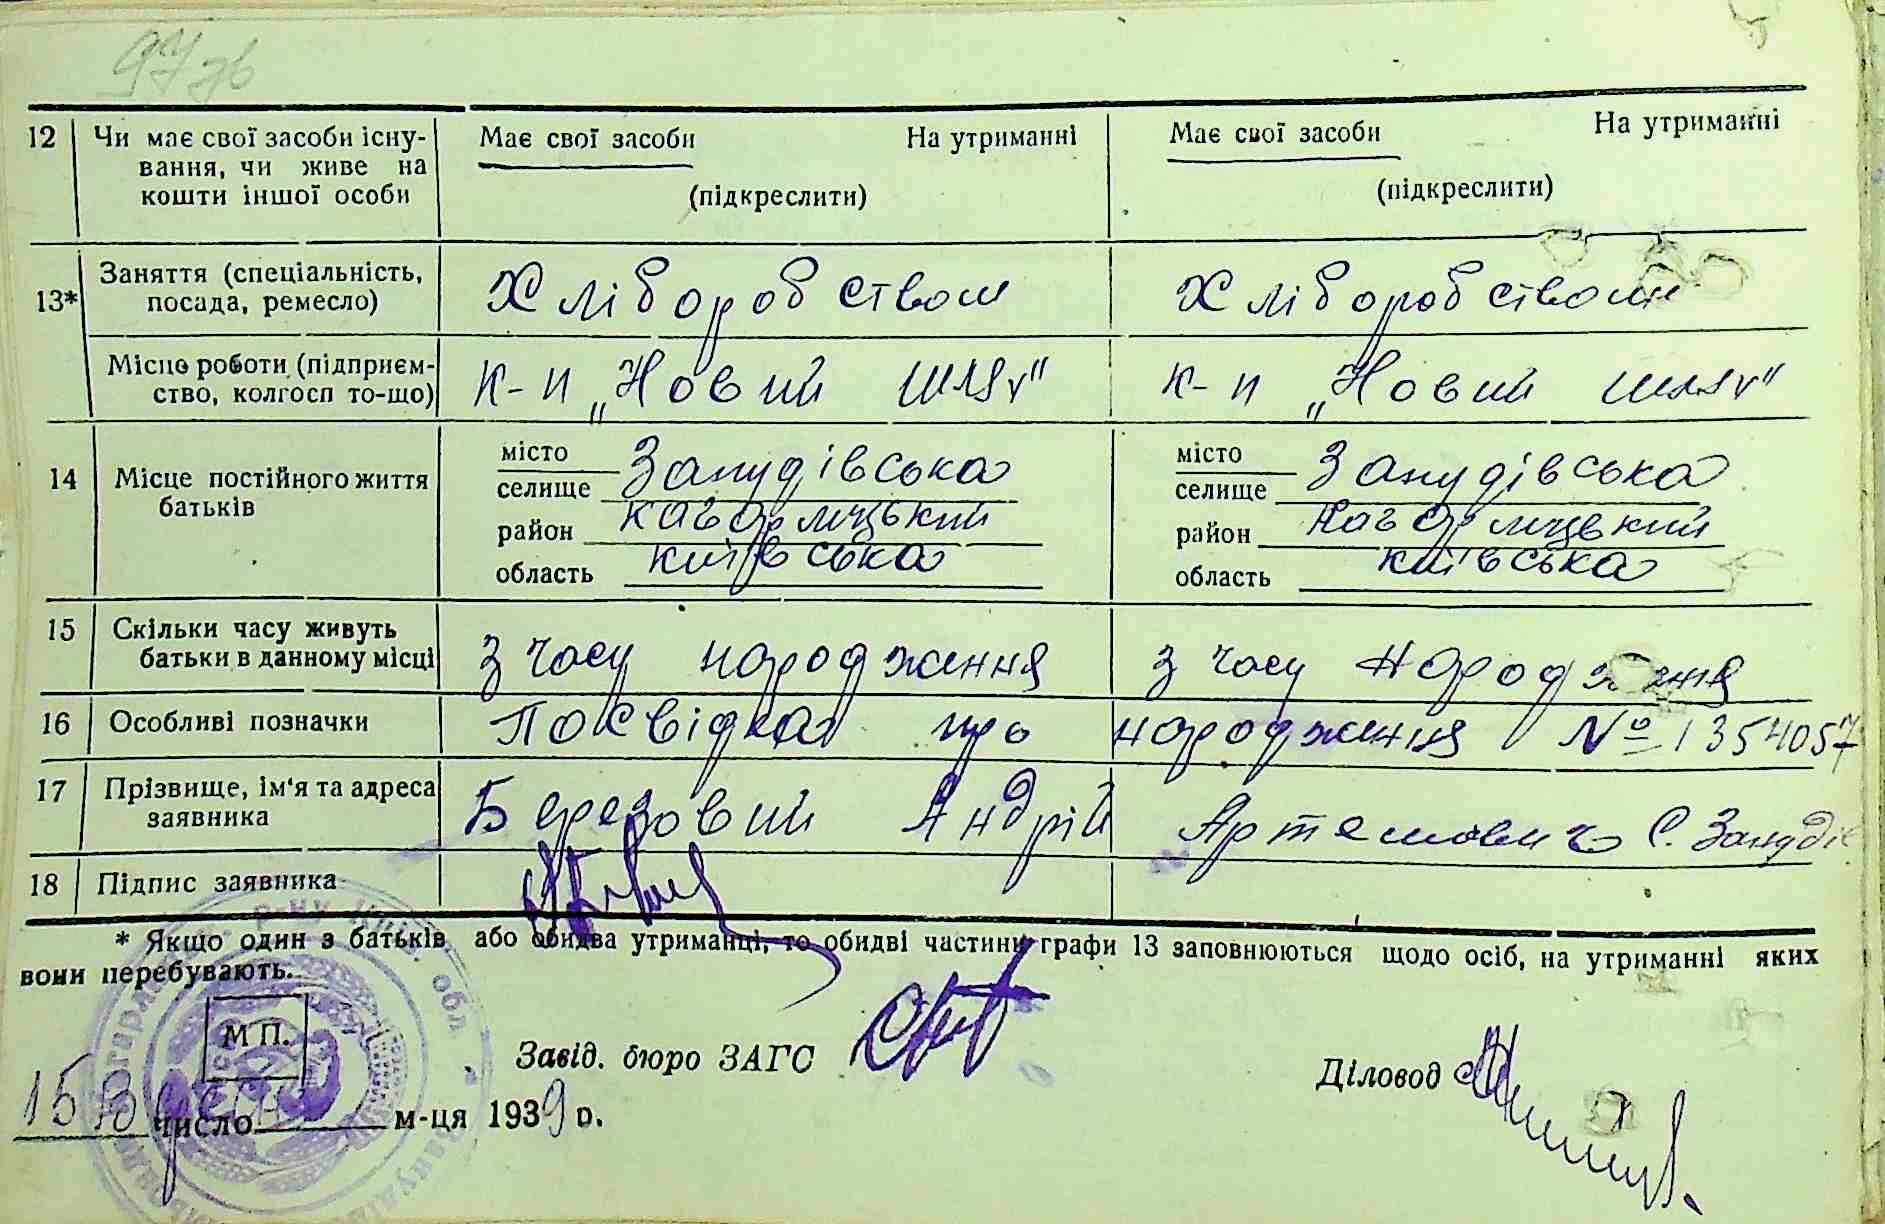 97 зв
12 Чи має свої засоби існу- Має свої засоби На утриманні Має свої засоби На утриманні
вання, чи живе на
кошти іншої особи (підкреслити) (підкреслити)
13* Заняття (спеціальність,
посада, ремесло) Хліборобством Хліборобством
Місце роботи (підприєм-
ство, колгосп то-що) к-п „Новий шлях" к-п „Новий шлях"
14 Місце постійного життя
батьків
місто
селище Запудівська
район кагорлицький
область київська
місто
селище Запудівська
район кагорлицький
область київська
15 Скільки часу живуть
батьки в данному місці З часу народження З часу народження
16 Особливі позначки Посвідка про народження № 1354057
17 Прізвище, ім'я та адреса
заявника Березовий Андрій Артемович С. Запудів
18 Підпис заявника
* Якщо один з батьків або обидва утриманці, то обидві частини графи 13 заповнюються щодо осіб, на утриманні яких
вони перебувають.
М П.
Завід. бюро ЗАГС
Діловод
15 число м-ця 1939 р.